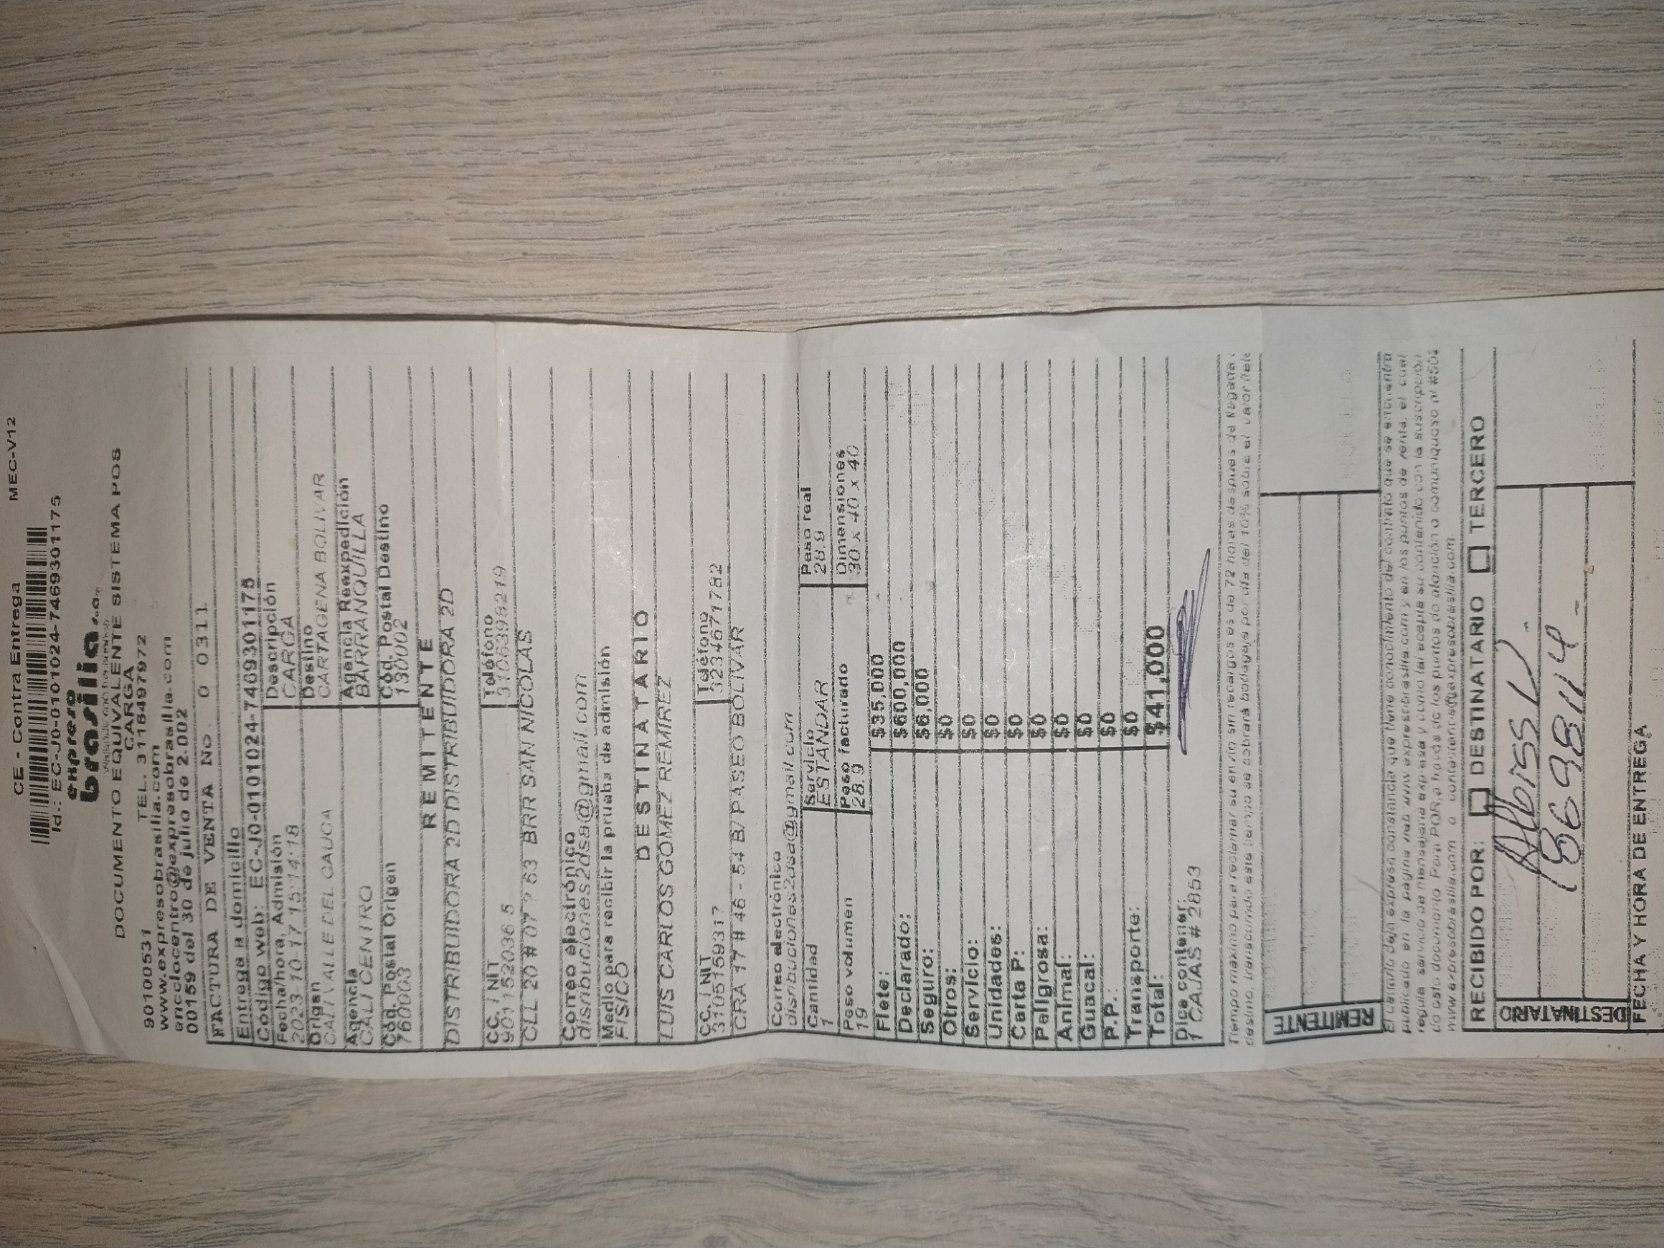 CE - Contra Entrega MEC-V12
Id.: EC-J0-0101024-7469301175
expreso
brasilia s.a.
DOCUMENTO EQUIVALENTE SISTEMA POS
CARGA
890100531 TEL. 3118497972
www.expresobrasilia.com
encclocentro@expresobrasilla.com
00159 del 30 de julio de 2.002
FACTURA DE VENTA No. 0 0311
Entrega a domicilio
Codigo web: EC-J0-0101024-7469301175
Fecha/hora, Admisión Descripción
2023-10-17 15:14:18 CARGA
Origen Destino
CALI VALLE DEL CAUCA CARTAGENA BOLIVAR
Agencia Agencia Reexpedición
CALI CENTRO BARRANQUILLA
Cód. Postal Origen Cód. Postal Destino
760003 130002
REMITENTE
DISTRIBUIDORA 2D DISTRIBUIDORA 2D
CC. / NIT Teléfono
901152036 5 3106398219
CLL 20 # 07 ? 63 BRR SAN NICOLAS
Correo electrónico
disribuciones2dsa@gmail.com
Medio para recibir la prueba de admisión
FISICO
DESTINATARIO
LUIS CARLOS GOMEZ REMIREZ
CC. / NIT Teléfono
3105159317 3234671782
CRA 17 # 46 - 54 B/ PASEO BOLIVAR
Correo electrónico
disribuciones2dsa@gmail.com
Cantidad Servicio Peso real
1 ESTANDAR 28.9
Peso volumen Peso facturado Dimensiones
19 28.9 30 x 40 x 40
Flete: $35,000
Declarado: $600,000
Seguro: $6,000
Otros: $0
Servicio: $0
Unidades: $0
Carta P: $0
Paligrosa: $0
Animal: $0
Guacal: $0
P.P.: $0
Transporte: $0
Total: $41,000
Dice contener:
1 CAJAS # 2853
Tiempo maximo para reclamar su envio sin recargos es de 72 horas despues de llegada a
destino, transcurrido este tiempo se cobrará bodegaje por día del 10% sobre el valor flete
REMITENTE
El cliente deja expresa constancia que tiene conocimiento del contrato que se encuentra
publicado en la pagina web www.expresobrasilia.com y en los puntos de venta, el cual
regula servicio de mensajeria expresa y como tal acepta su contenido con la suscripción
de este documento. Para PQR, a través de los puntos de atención o comuniquese al #502
RECIBIDO POR: DESTINATARIO TERCERO
DESTINATARIO
8698114
FECHA Y HORA DE ENTREGA